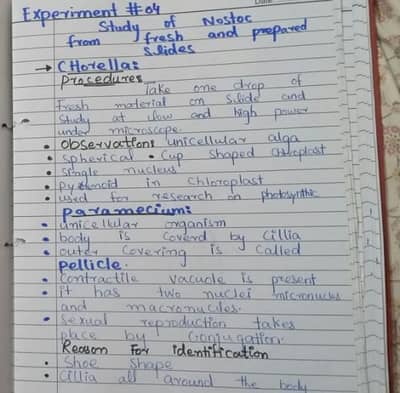 Experiment #04
Study of Nostoc
from fresh and prepared
slides
→ CHorella:
Procedures
Take one drop of
Fresh material on Slide and
Study at low and high power
under microscope.
• Observation: unicellular alga
• Spherical • Cup shaped chloroplast
• Single nucleus
• Pyrenoid in Chloroplast
• used for research on photosynthic
Paramecium:
• Unicellular organism
• body is Coverd by Cillia
• outer Covering is Called
Pellicle.
• Contractile vacuole is present
• it has two nuclei micronucleus
and macronucules.
• Sexual reproduction takes
place by Conjugation.
Reason For identification
• Shoe Shape
• Cillia all around the body